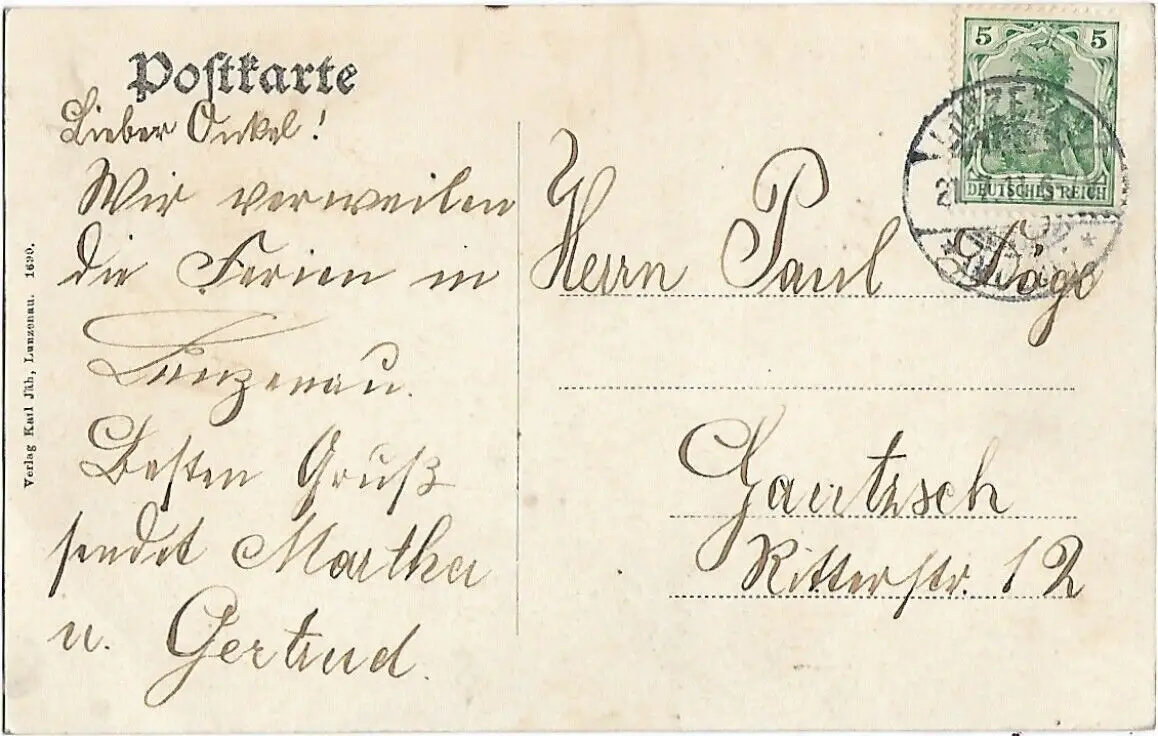 Postkarte
Lieber Onkel!
Wir verweilen
die Ferien in
Lunzenau.
Besten Gruß
sendet Martha
u. Gertrud.
Verlag Karl Jäh, Lunzenau. 1690.
5 5
DEUTSCHES REICH
LUNZEN
Herrn Paul Däge
Gautzsch
Ritterstr. 12